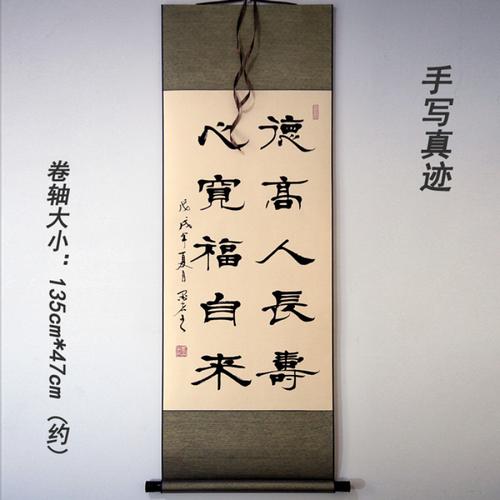 手写真迹
德高人長壽
心寬福自来
戊戌年夏月
卷轴大小：135cm*47cm（约）